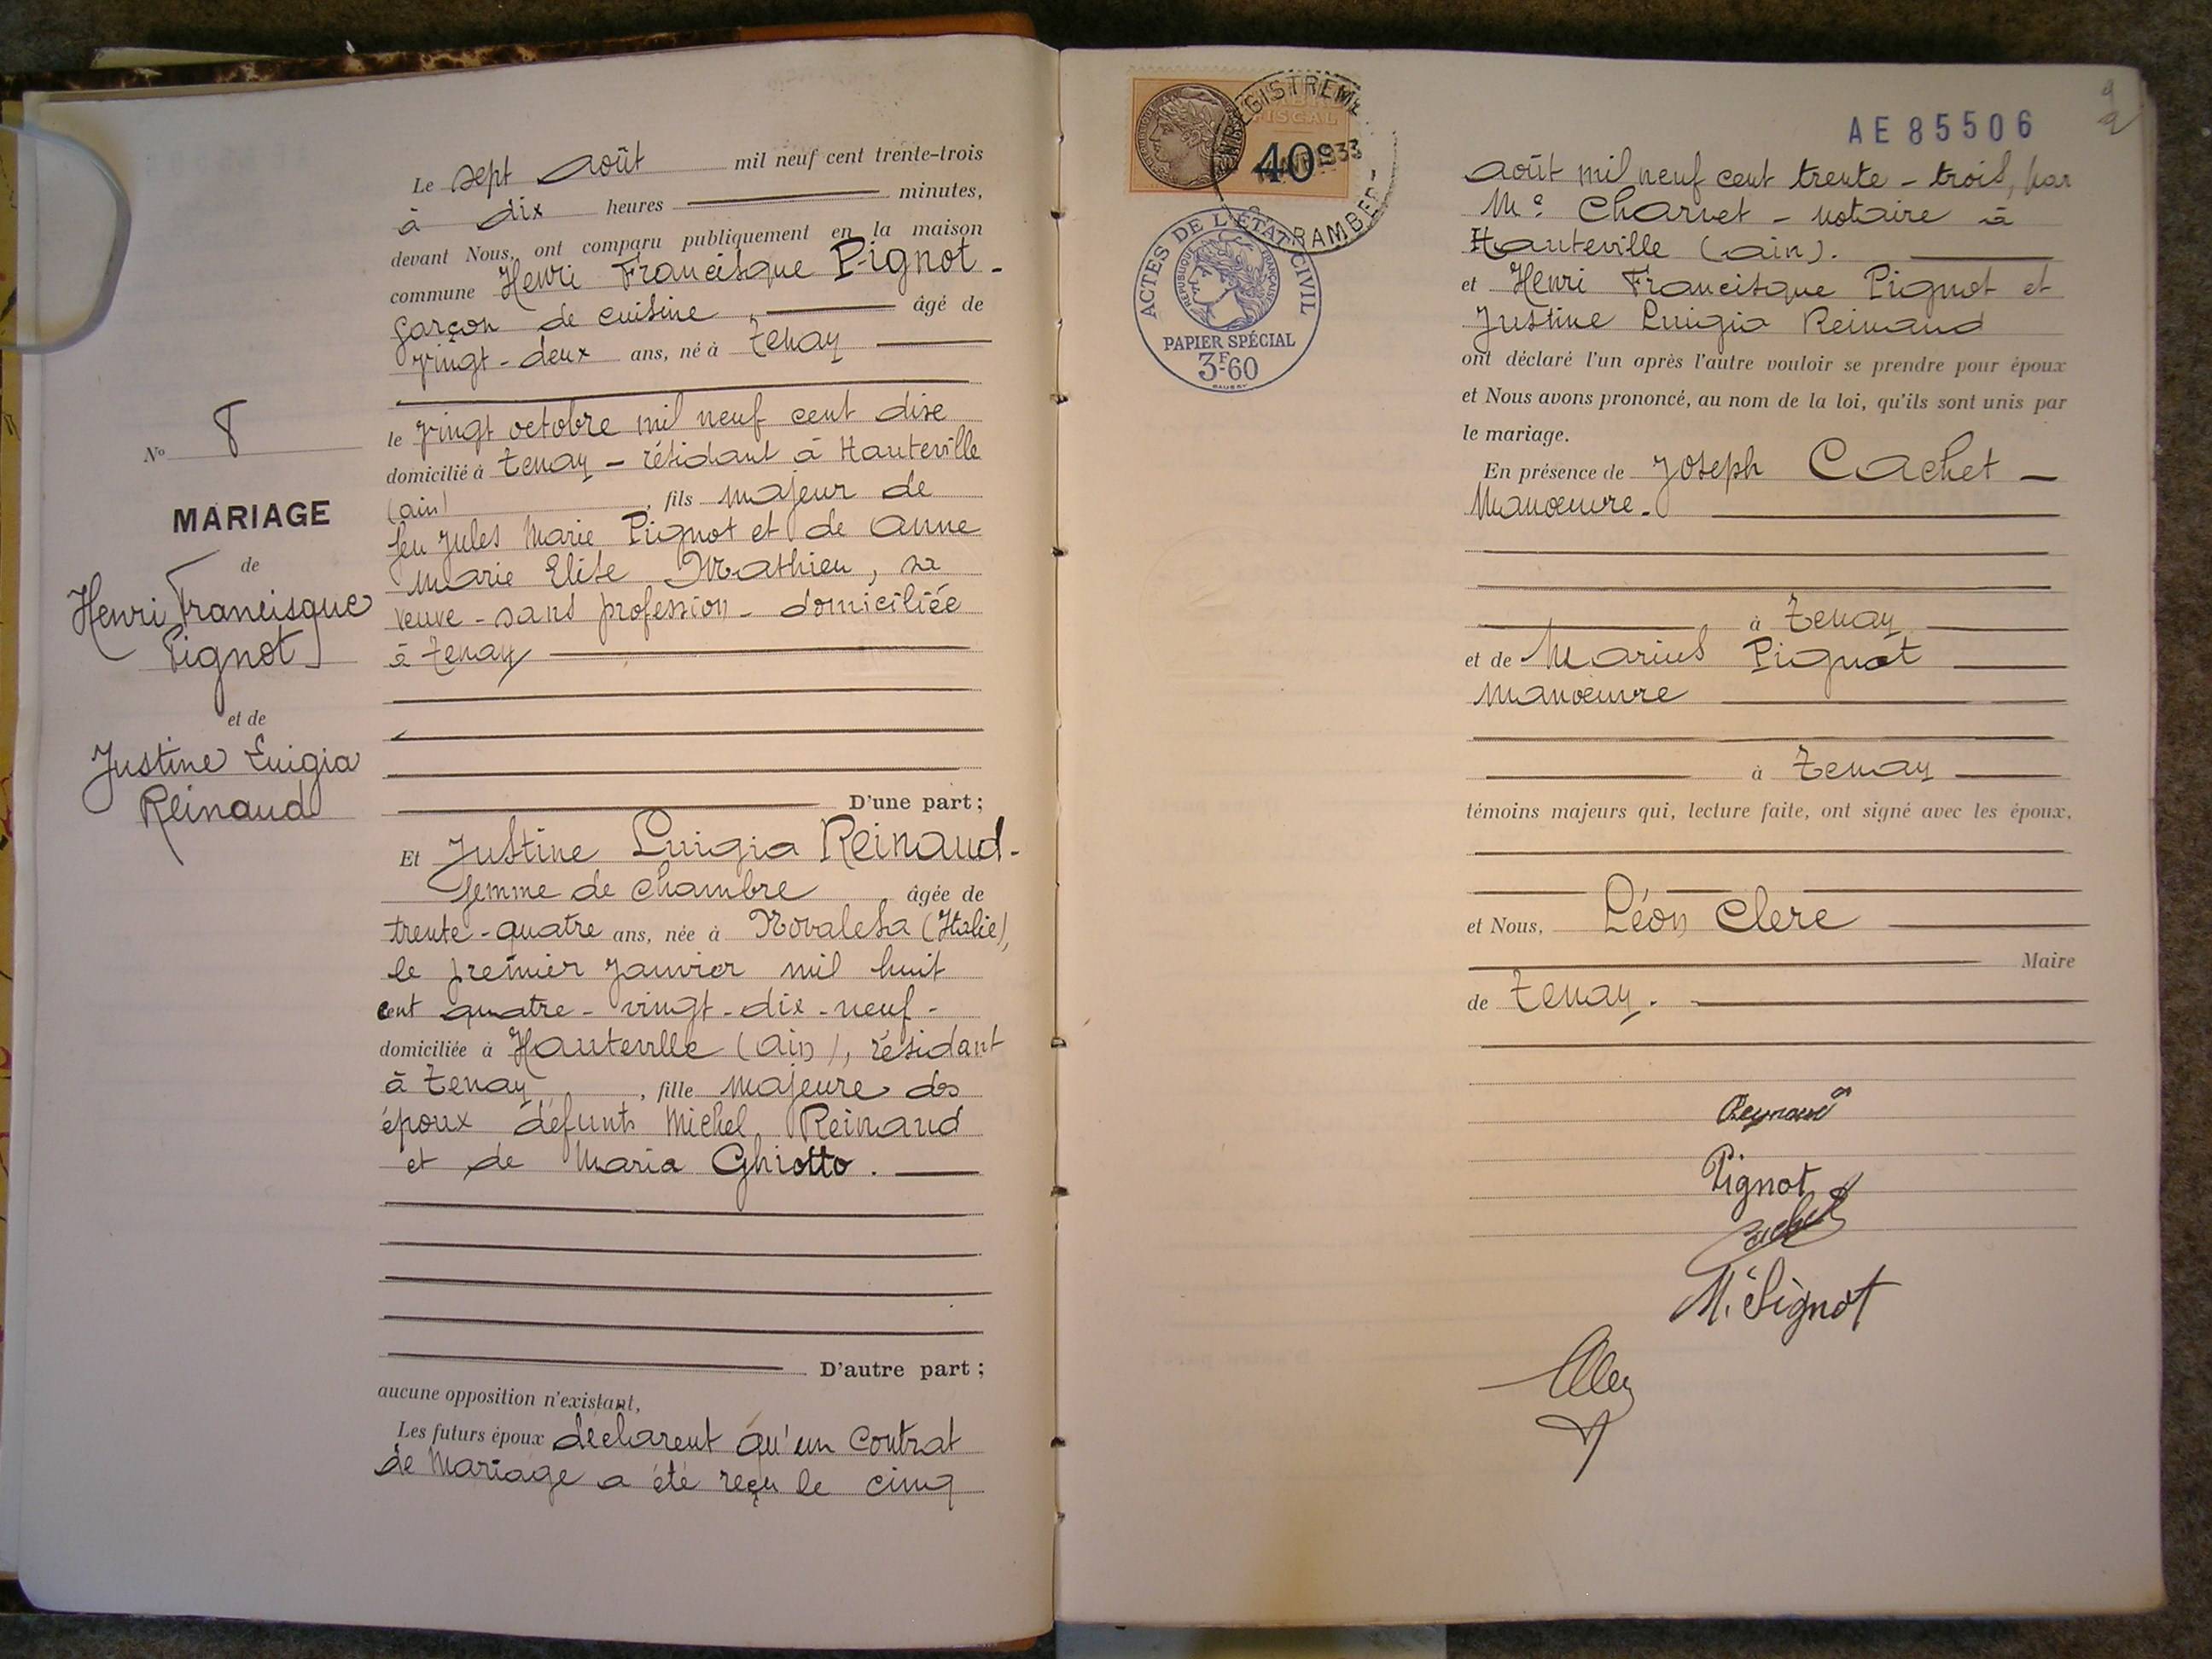 Nº 8
MARIAGE
de
Henri Francisque
Pignot
et de
Justine Luigia
Reinaud
Le sept août mil neuf cent trente-trois
à dix heures minutes,
devant Nous, ont comparu publiquement en la maison
commune Henri Francisque Pignot -
garçon de cuisine, âgé de
vingt-deux ans, né à Tenay
le vingt octobre mil neuf cent dixe
domicilié à Tenay - résidant à Hauteville
(ain), fils majeur de
feu Jules Marie Pignot et de Anne
Marie Elise Mathieu, sa
veuve - sans profession - domiciliée
à Tenay
D'une part;
Et Justine Luigia Reinaud -
femme de chambre âgée de
trente-quatre ans, née à Novalesa (Italie),
le premier Janvier mil huit
cent quatre-vingt-dix-neuf -
domiciliée à Hauteville (ain), résidant
à Tenay, fille majeure des
époux défunts Michel Reinaud
et de Maria Ghiotto.
D'autre part;
aucune opposition n'existant,
Les futurs époux déclarent qu'un contrat
de Mariage a été reçu le cinq
FISCAL
40c
1933
ACTES DE L'ÉTAT CIVIL
RÉPUBLIQUE FRANÇAISE
PAPIER SPÉCIAL
3F60
AE 85506
août mil neuf cent trente-trois, par
Me Charvet - notaire à
Hauteville (ain).
et Henri Francisque Pignot et
Justine Luigia Reinaud
ont déclaré l'un après l'autre vouloir se prendre pour époux
et Nous avons prononcé, au nom de la loi, qu'ils sont unis par
le mariage.
En présence de Joseph Cachet -
Manœuvre.
à Tenay
et de Marius Pignot
manœuvre
à Tenay
témoins majeurs qui, lecture faite, ont signé avec les époux,
et Nous, Léon Clerc
Maire
de Tenay.
Reynaud
Pignot
Cachet
M. Pignot